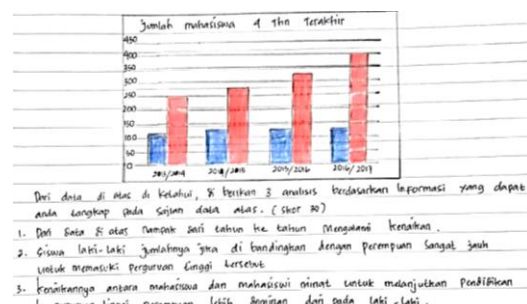 Jumlah mahasiswa 4 Thn Terakhir
450
400
350
300
250
200
150
100
50
10
2013/2014 2014/2015 2015/2016 2016/2017
Dari data di atas di ketahui, & berikan 3 analisis berdasarkan informasi yang dapat
anda tangkap pada sajian data atas. (skor 30)
1. Dari data di atas nampak dari tahun ke tahun mengalami kenaikan.
2. Siswa laki-laki jumlahnya jika di bandingkan dengan perempuan sangat jauh
untuk memasuki perguruan tinggi tersebut
3. Kenaikannya antara mahasiswa dan mahasiswi minat untuk melanjutkan pendidikan
perempuan lebih dari pada laki-laki.